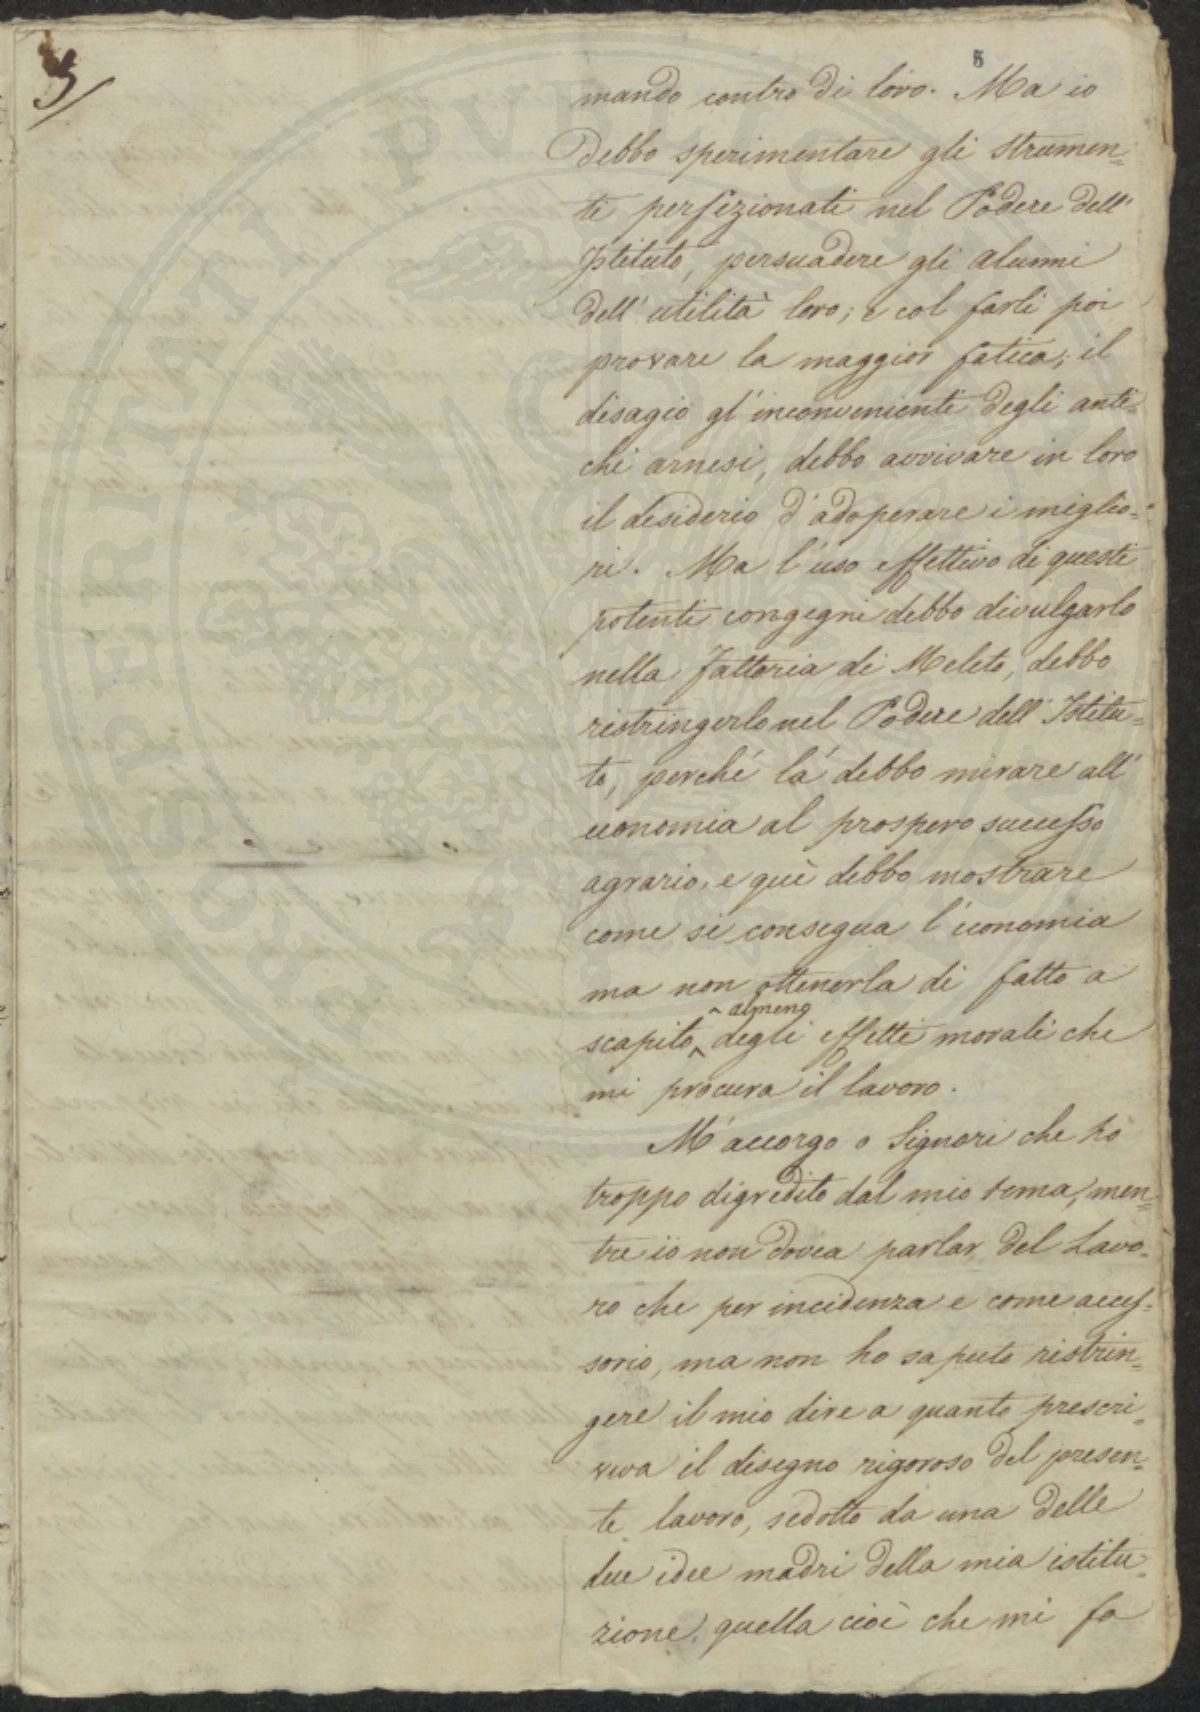 5
5
mando contro di loro. Ma io
debbo sperimentare gli strumen=
ti perfezionati nel Podere dell'
Istituto, persuadere gli alunni
dell'utilità loro; e col farli poi
provare la maggior fatica, il
disagio gl'inconvenienti degli anti=
chi arnesi, debbo avvivare in loro
il desiderio d'adoperare i miglio=
ri. Ma l'uso effettivo di questi
potenti congegni debbo divulgarlo
nella Fattoria di Meleto, debbo
ristringerlo nel Podere dell'Istitu=
to, perché là debbo mirare all'
economia al prospero successo
agrario, e quì debbo mostrare
come si consegua l'economia
ma non ottenerla di fatto a
^ almeno
scapito ^ degli effetti morali che
mi procura il lavoro.
M'accorgo o Signori che ho
troppo digredito dal mio tema, men=
tre io non dovea parlar del Lavo=
ro che per incidenza e come acces=
sorio, ma non ho saputo ristrin=
gere il mio dire a quanto prescri=
veva il disegno rigoroso del presen=
te lavoro, sedotto da una delle
due idee madri della mia istitu=
zione, quella cioè che mi fa
PVBLICAE
LIBERTATI